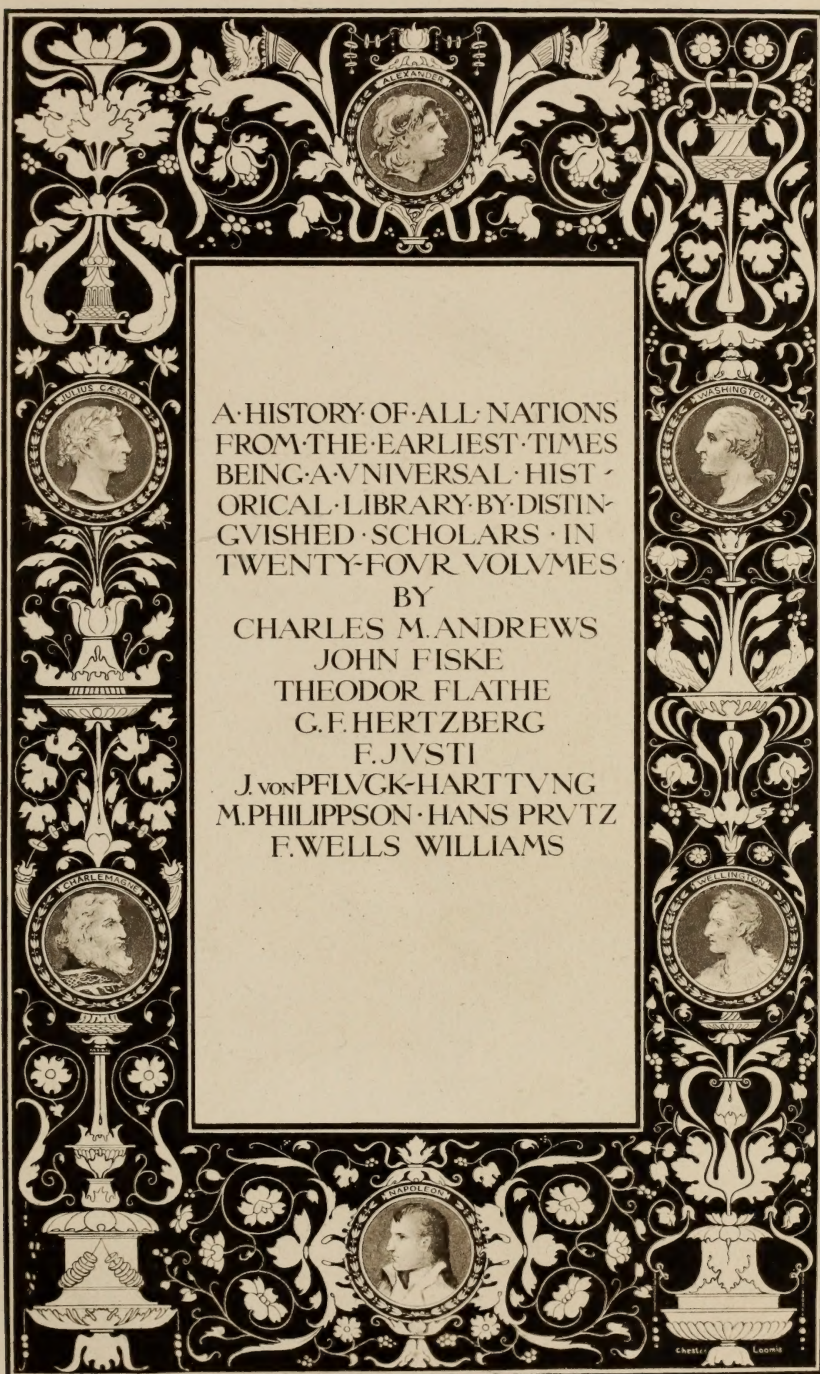 ALEXANDER
JULIUS CÆSAR
WASHINGTON
A·HISTORY·OF·ALL·NATIONS
FROM·THE·EARLIEST·TIMES
BEING·A·VNIVERSAL·HIST-
ORICAL·LIBRARY·BY·DISTIN-
GVISHED·SCHOLARS·IN
TWENTY-FOVR VOLVMES·
BY
CHARLES M. ANDREWS
JOHN FISKE
THEODOR FLATHE
G. F. HERTZBERG
F. JVSTI
J. von PFLVGK-HARTTVNG
M. PHILIPPSON · HANS PRVTZ
F. WELLS WILLIAMS
CHARLEMAGNE
WELLINGTON
NAPOLEON
Chester Loomis